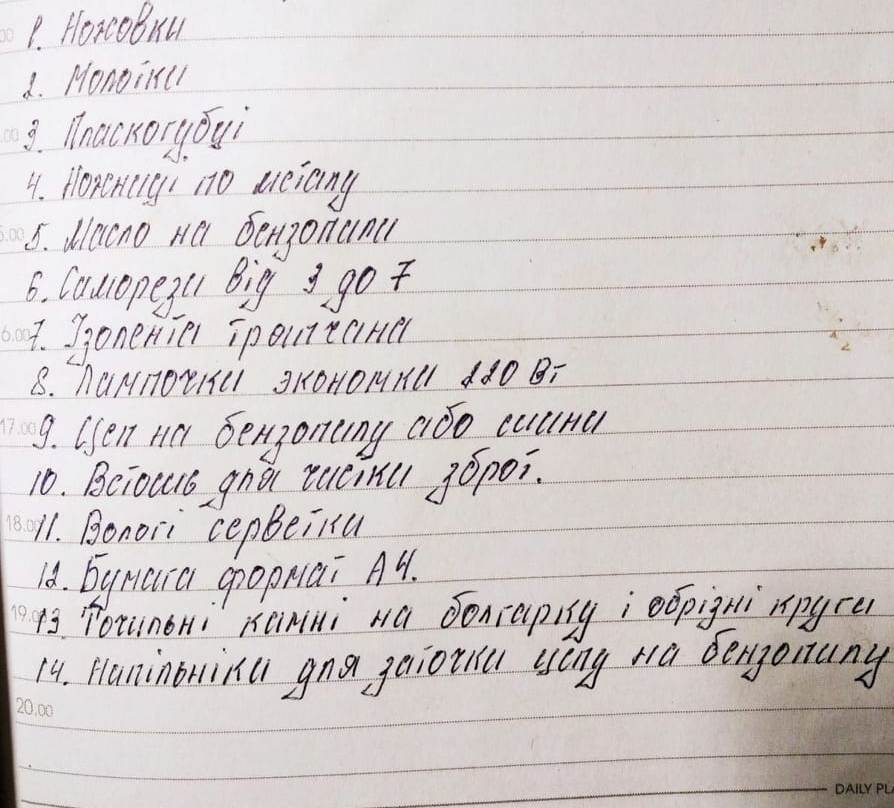 1. Ножовки
2. Молотки
3. Пласкогубці
4. Ножниці по металу
15.00 5. Масло на бензопили
6. Саморези від 3 до 7
16.00 7. Ізолента тряпчана
8. Лампочки экономки 220 Вт
17.00 9. Цеп на бензопилу або шини
10. Встошь для чистки зброї.
18.00 11. Вологі серветки
12. Бумага формат А4.
19.00 13 Точильні камні на болгарку і обрізні круги
14. Напільніки для заточки цепу на бензопилу
20.00
DAILY PL